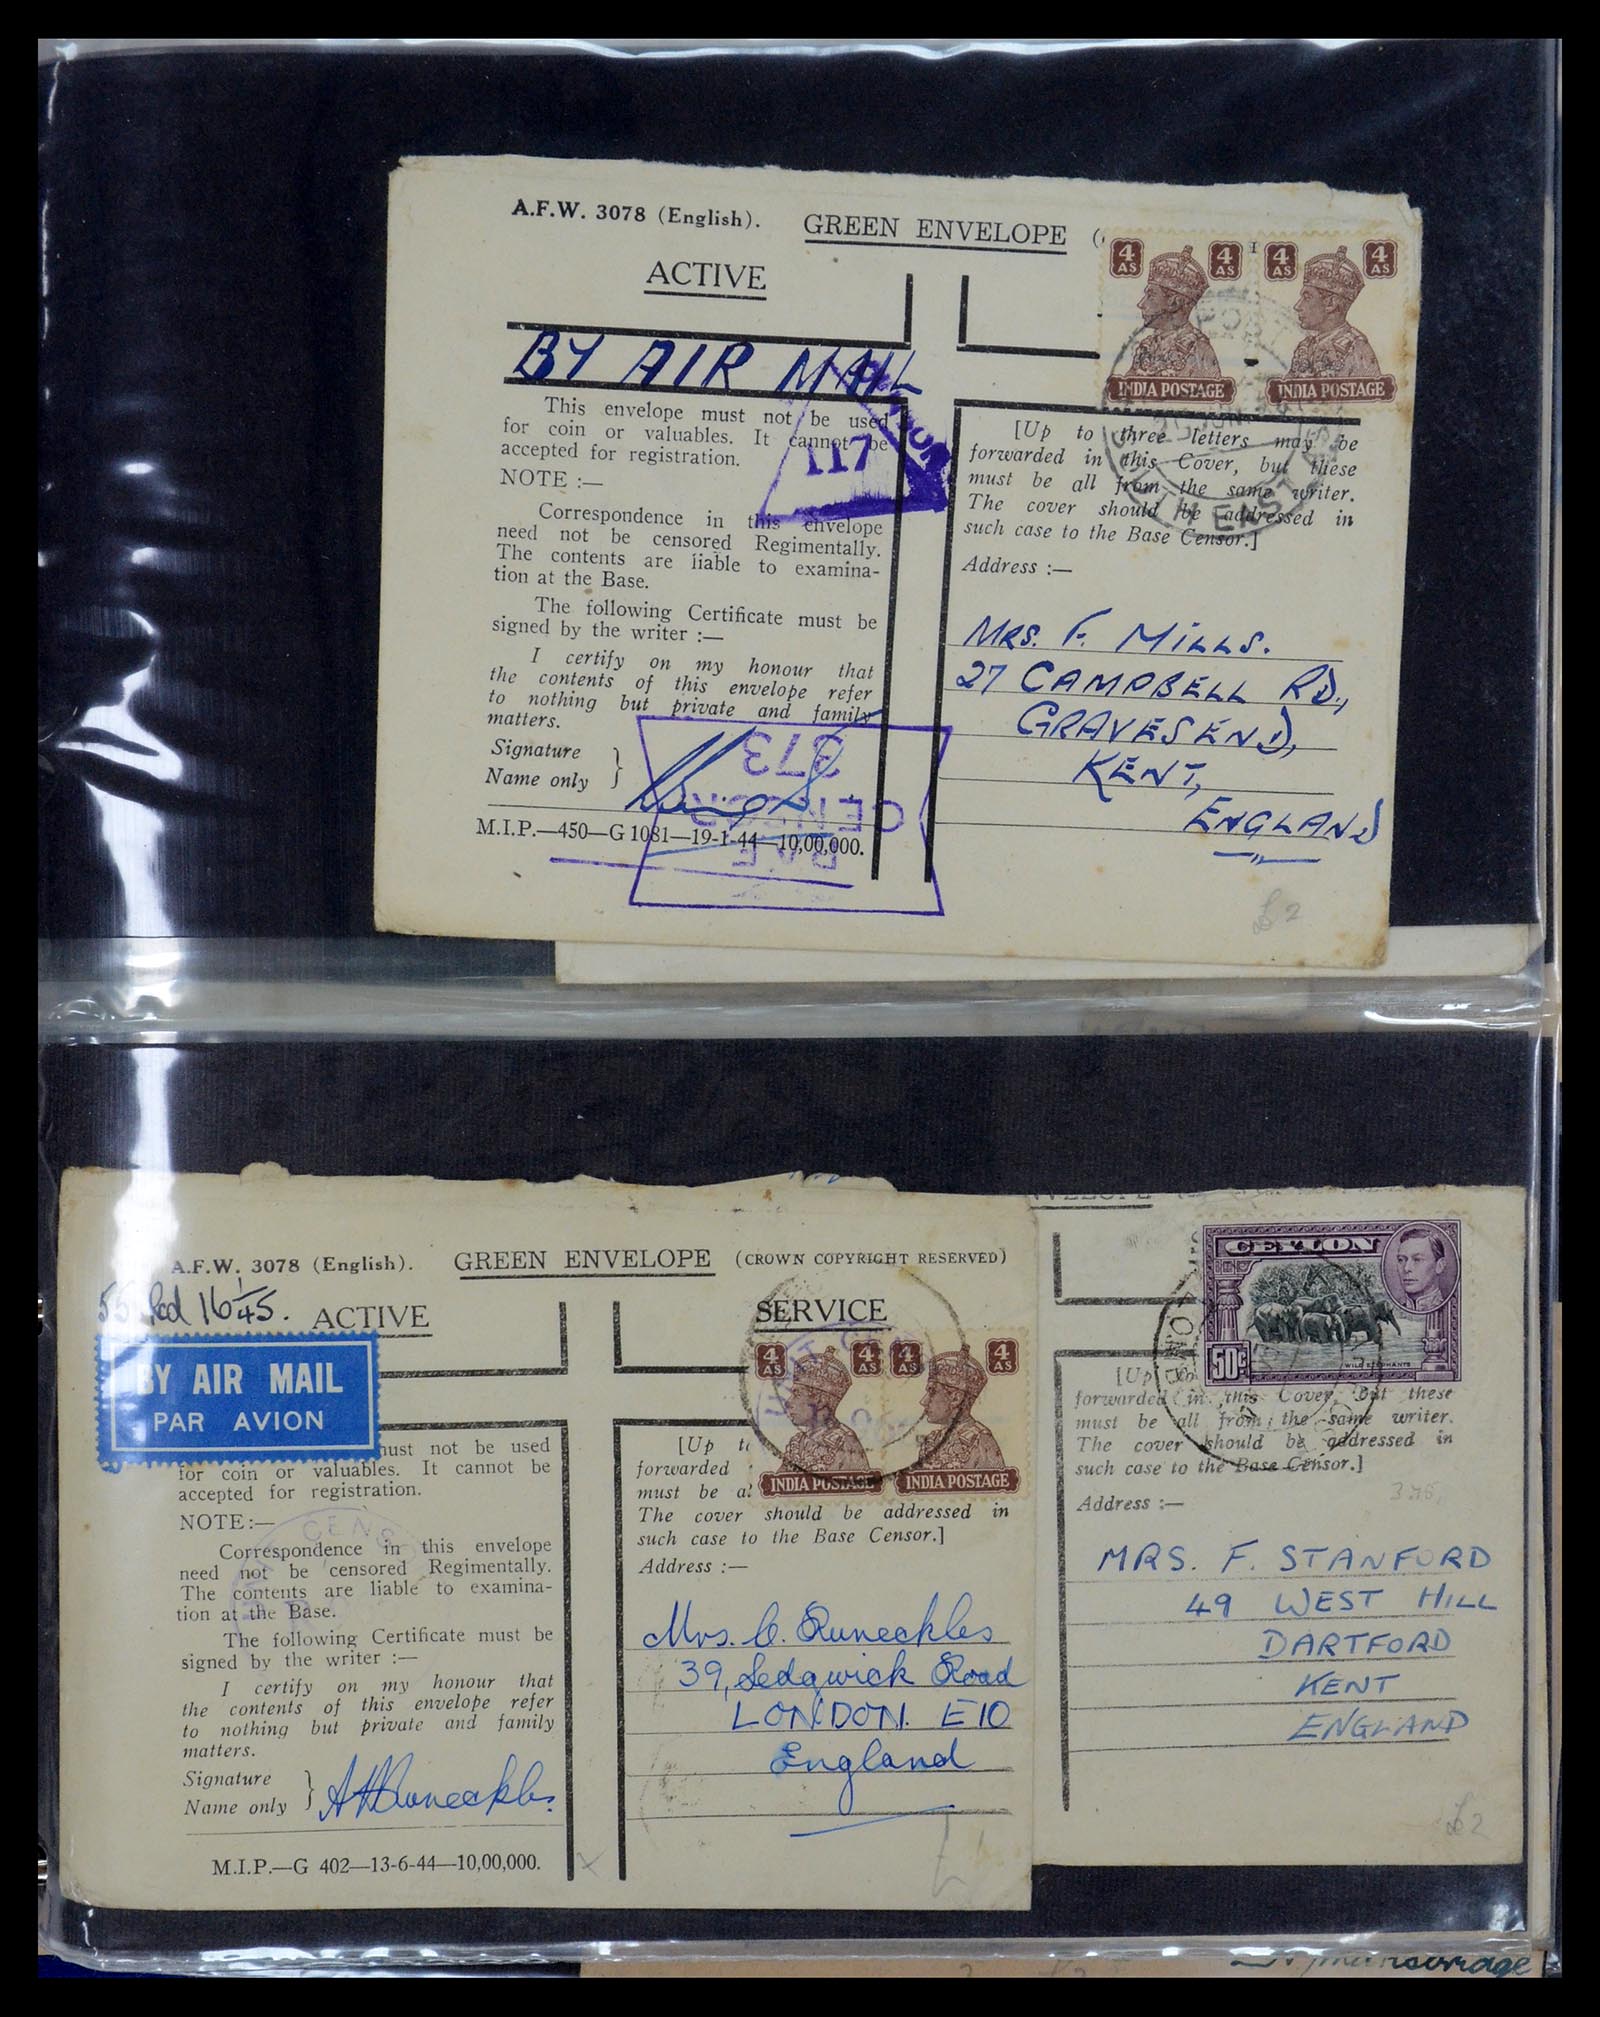 A.F.W. 3078 (English).
GREEN ENVELOPE (
ACTIVE
4 AS 4 AS 4 AS 4 AS
INDIA POSTAGE INDIA POSTAGE
BY AIR MAIL
This envelope must not be used
for coin or valuables. It cannot be
accepted for registration.
NOTE :—
Correspondence in this envelope
need not be censored Regimentally.
The contents are liable to examina-
tion at the Base.
The following Certificate must be
signed by the writer :—
I certify on my honour that
the contents of this envelope refer
to nothing but private and family
matters.
Signature
Name only }
M.I.P.—450—G 1081—19-1-44—10,00,000.
117
373
CENSOR
R.A.F.
[Up to three letters may be
forwarded in this Cover, but these
must be all from the same writer.
The cover should be addressed in
such case to the Base Censor.]
Address :—
MRS. F. MILLS.
27 CAMPBELL RD.,
GRAVESEND,
KENT,
ENGLAND
£2
A.F.W. 3078 (English).
GREEN ENVELOPE (CROWN COPYRIGHT RESERVED)
55 Rcd 16/1/45.
ACTIVE
SERVICE
BY AIR MAIL
PAR AVION
4 AS 4 AS 4 AS 4 AS
INDIA POSTAGE INDIA POSTAGE
must not be used
for coin or valuables. It cannot be
accepted for registration.
NOTE:—
Correspondence in this envelope
need not be censored Regimentally.
The contents are liable to examina-
tion at the Base.
The following Certificate must be
signed by the writer :—
I certify on my honour that
the contents of this envelope refer
to nothing but private and family
matters.
Signature
Name only }
M.I.P.—G 402—13-6-44—10,00,000.
[Up
forwarded
must be
The cover should be addressed in
such case to the Base Censor.]
Address :—
Mrs. C. Runeckles
39, Sedgwick Road
LONDON. E10
England
CEYLON
50c
WILD ELEPHANTS
[Up
forwarded in this Cover, but these
must be all from the same writer.
The cover should be addressed in
such case to the Base Censor.]
Address :—
MRS. F. STANFORD
49 WEST HILL
DARTFORD
KENT
ENGLAND
£2